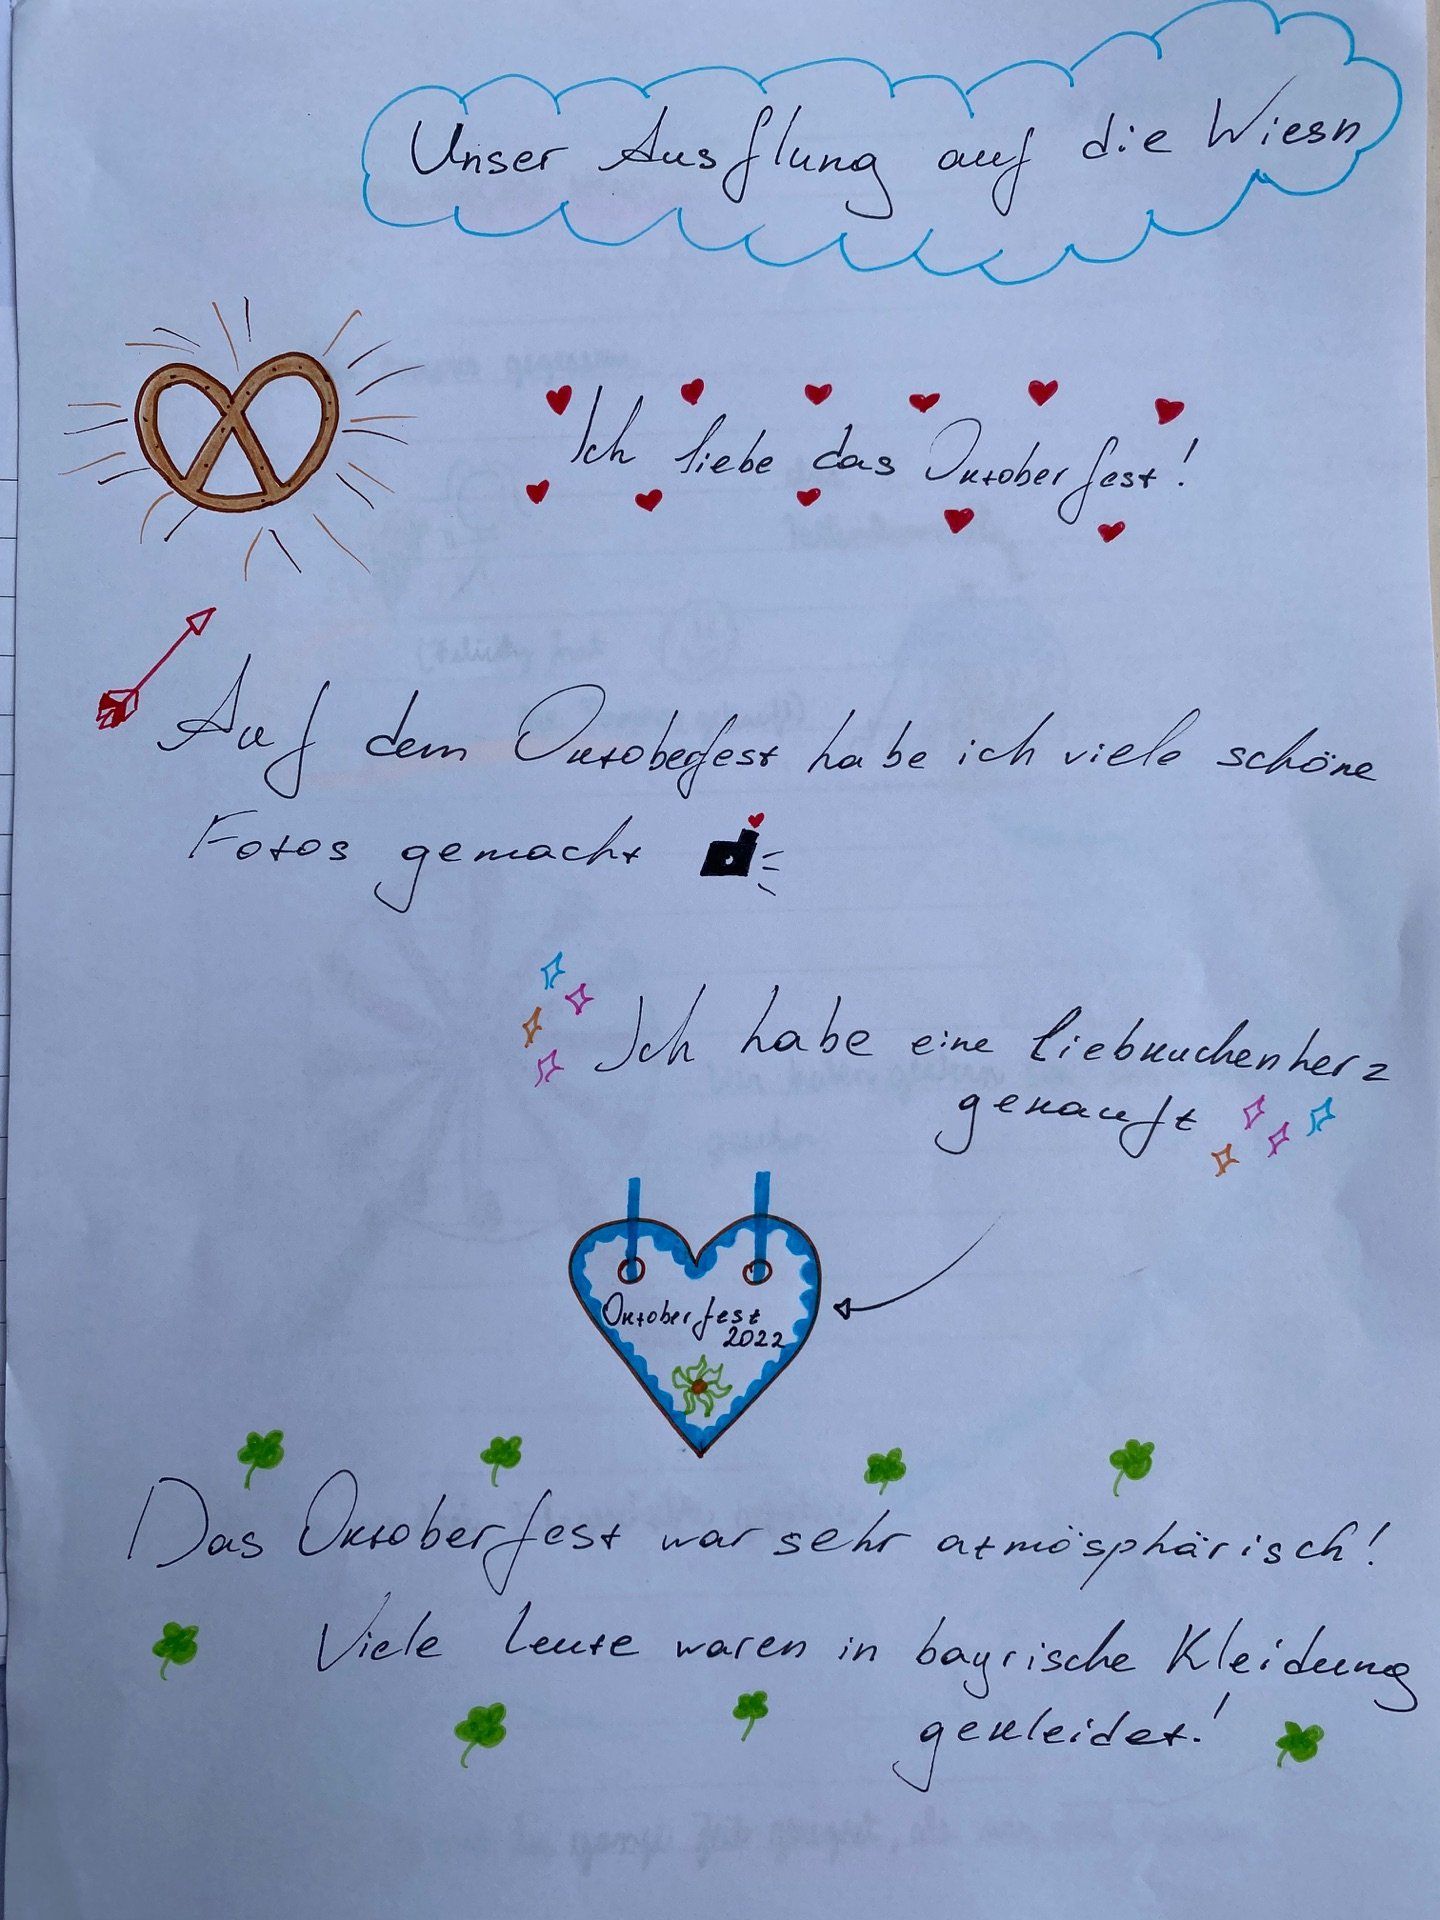 Unser Ausflung auf die Wiesn
Ich liebe das Oktoberfest!
Auf dem Oktobefest habe ich viele schöne
Fotos gemacht
Ich habe eine Liebkuchenherz
gekauft
Oktoberfest
2022
Das Oktoberfest war sehr atmösphärisch!
Viele Leute waren in bayrische Kleidung
gekleidet!